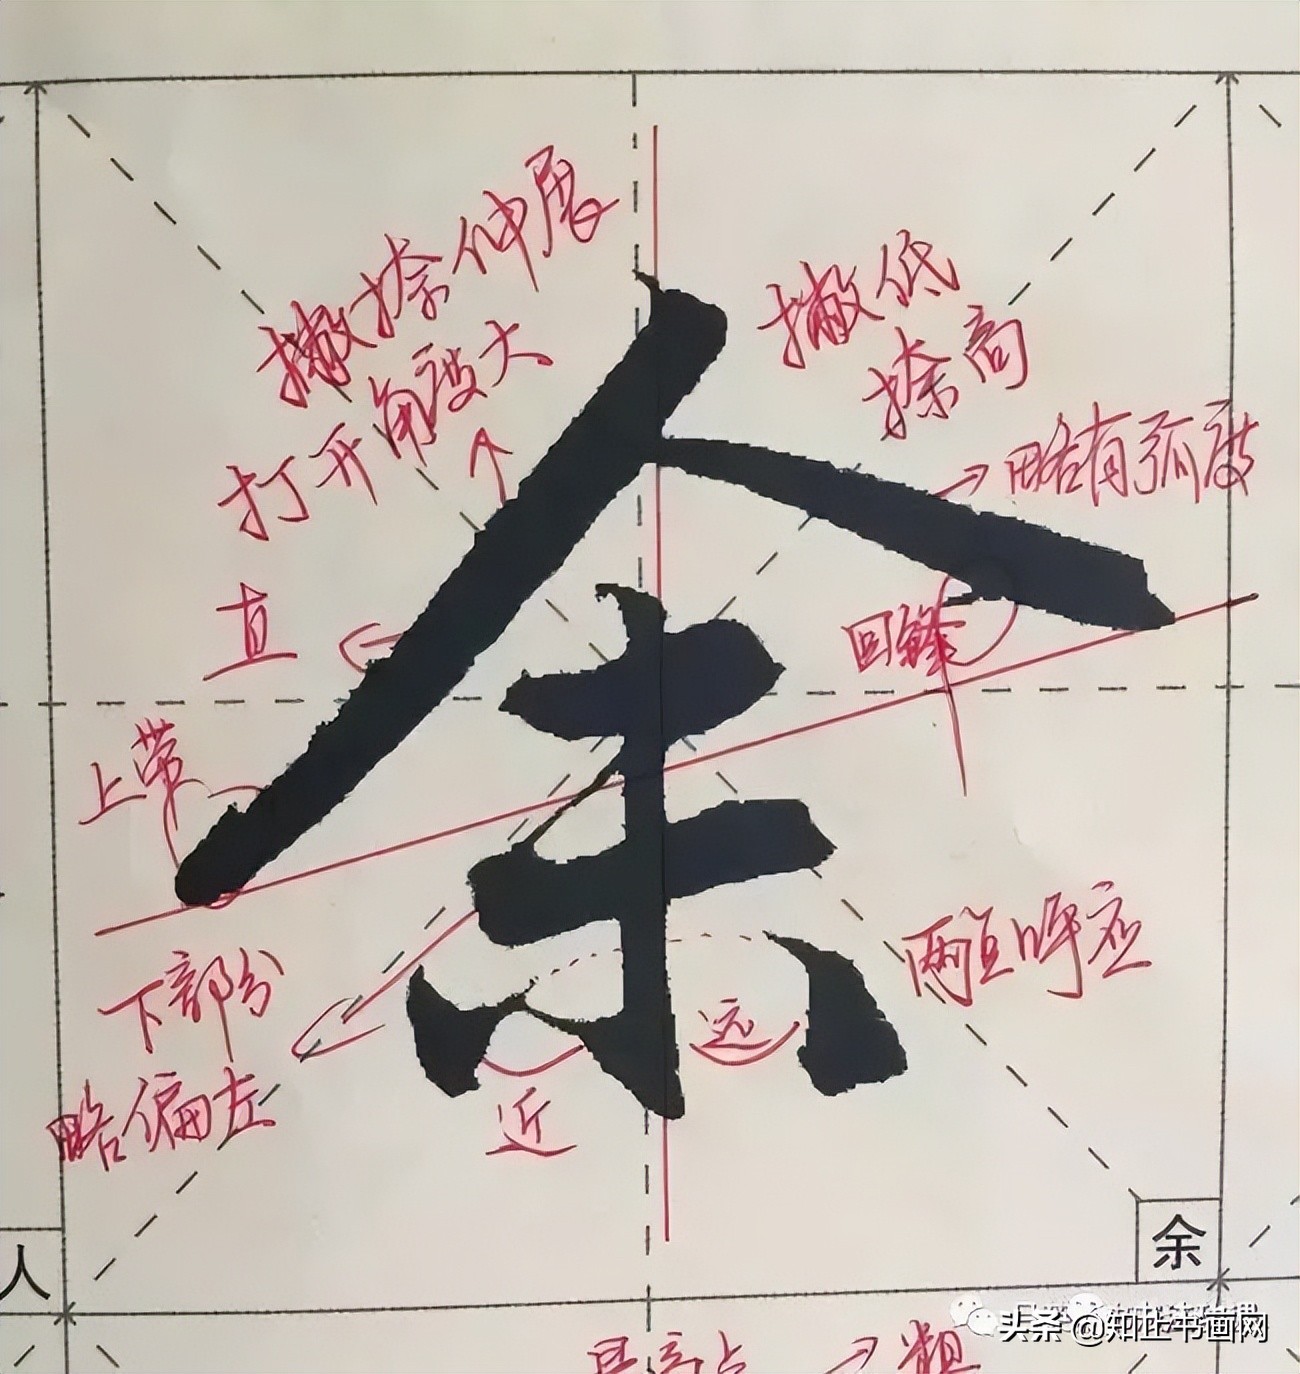 撇捺伸展
打开角度大
撇低
捺高
略有弧度
直
回锋
上带
余
两点呼应
下部分
略偏左
远
近
人
余
头条 @知止书画网
最高点
粗